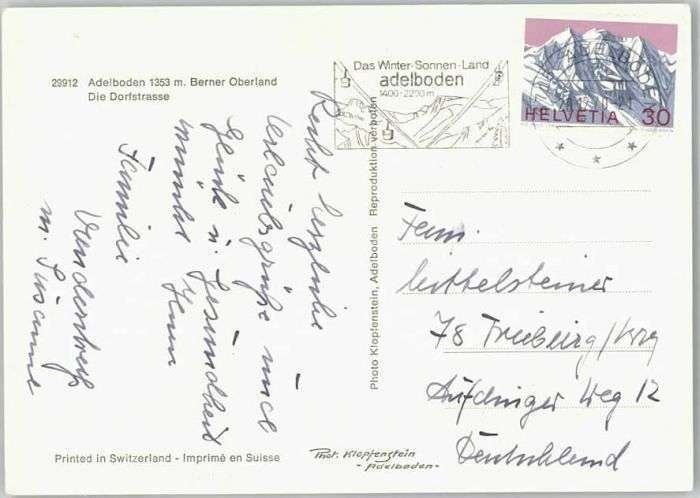 29912 Adelboden 1353 m. Berner Oberland
Die Dorfstrasse
Das Winter-Sonnen-Land
adelboden
1400-2200 m
HELVETIA 30
Recht herzliche
Urlaubsgrüße
Glück u. Gesundheit
wünscht Ihnen
Familie
m. Susanne
Photo Klopfenstein, Adelboden Reproduktion verboten
Fam.
Mittelsteiner
78 Freiburg/Brg
Aufdinger Weg 12
Deutschland
Printed in Switzerland - Imprimé en Suisse
Phot. Klopfenstein
- Adelboden -